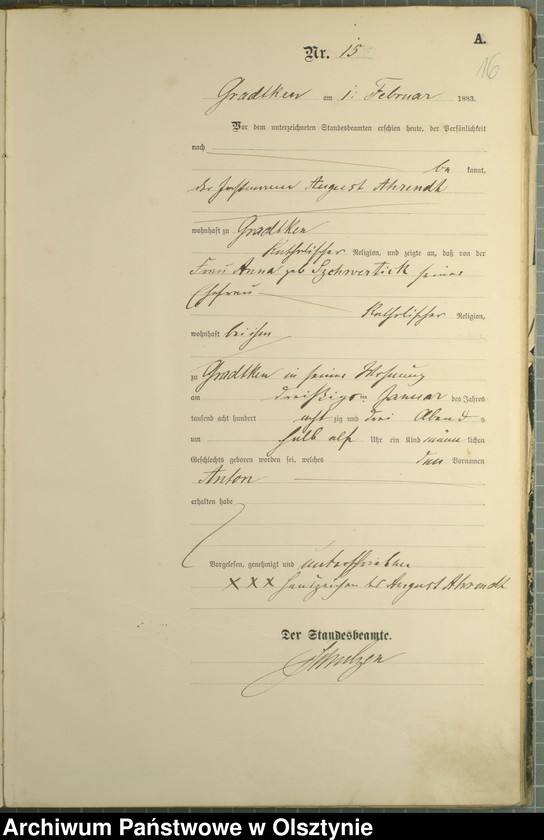 A.
Nr. 15
16
Gradtken am 1. Februar 1883.
Vor dem unterzeichneten Standesbeamten erschien heute, der Persönlichkeit
nach
be kannt,
der August Ahrendt
wohnhaft zu Gradtken
Katholischer Religion, und zeigte an, daß von der
Frau Anna geb Szchwertick seiner
Ehefrau
Katholischer Religion,
wohnhaft bei ihm
zu Gradtken in seiner Wohnung
am dreißigsten Januar des Jahres
tausend acht hundert acht zig und drei Abend s
um halb elf Uhr ein Kind männ lichen
Geschlechts geboren worden sei, welches den Vornamen
Anton
erhalten habe
Vorgelesen, genehmigt und unterschrieben
XXX Handzeichen des August Ahrendt
Der Standesbeamte.
Archiwum Państwowe w Olsztynie